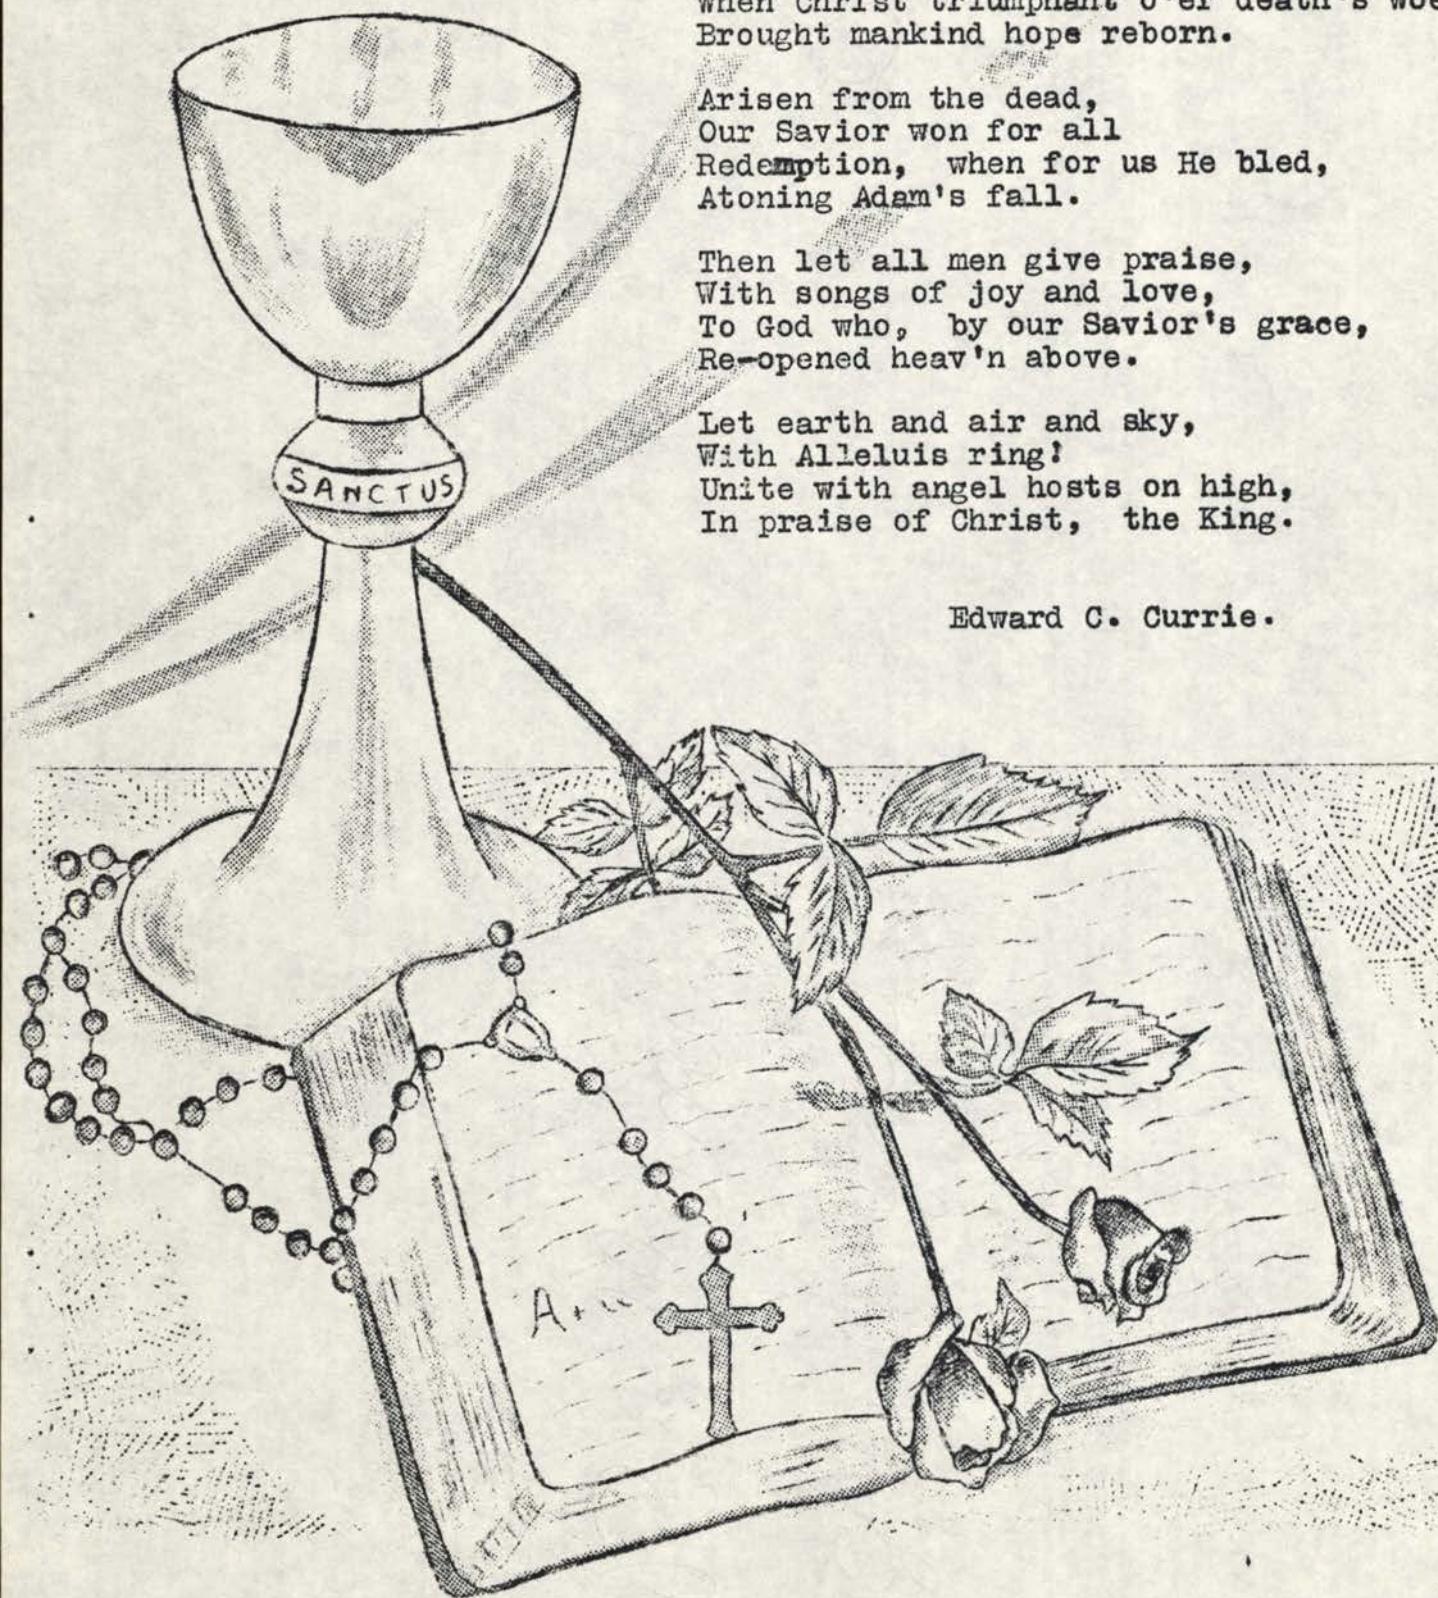 When Christ triumphant o'er death's woe
Brought mankind hope reborn.

Arisen from the dead,
Our Savior won for all
Redemption, when for us He bled,
Atoning Adam's fall.

Then let all men give praise,
With songs of joy and love,
To God who, by our Savior's grace,
Re-opened heav'n above.

Let earth and air and sky,
With Alleluis ring!
Unite with angel hosts on high,
In praise of Christ, the King.

Edward C. Currie.

SANCTUS